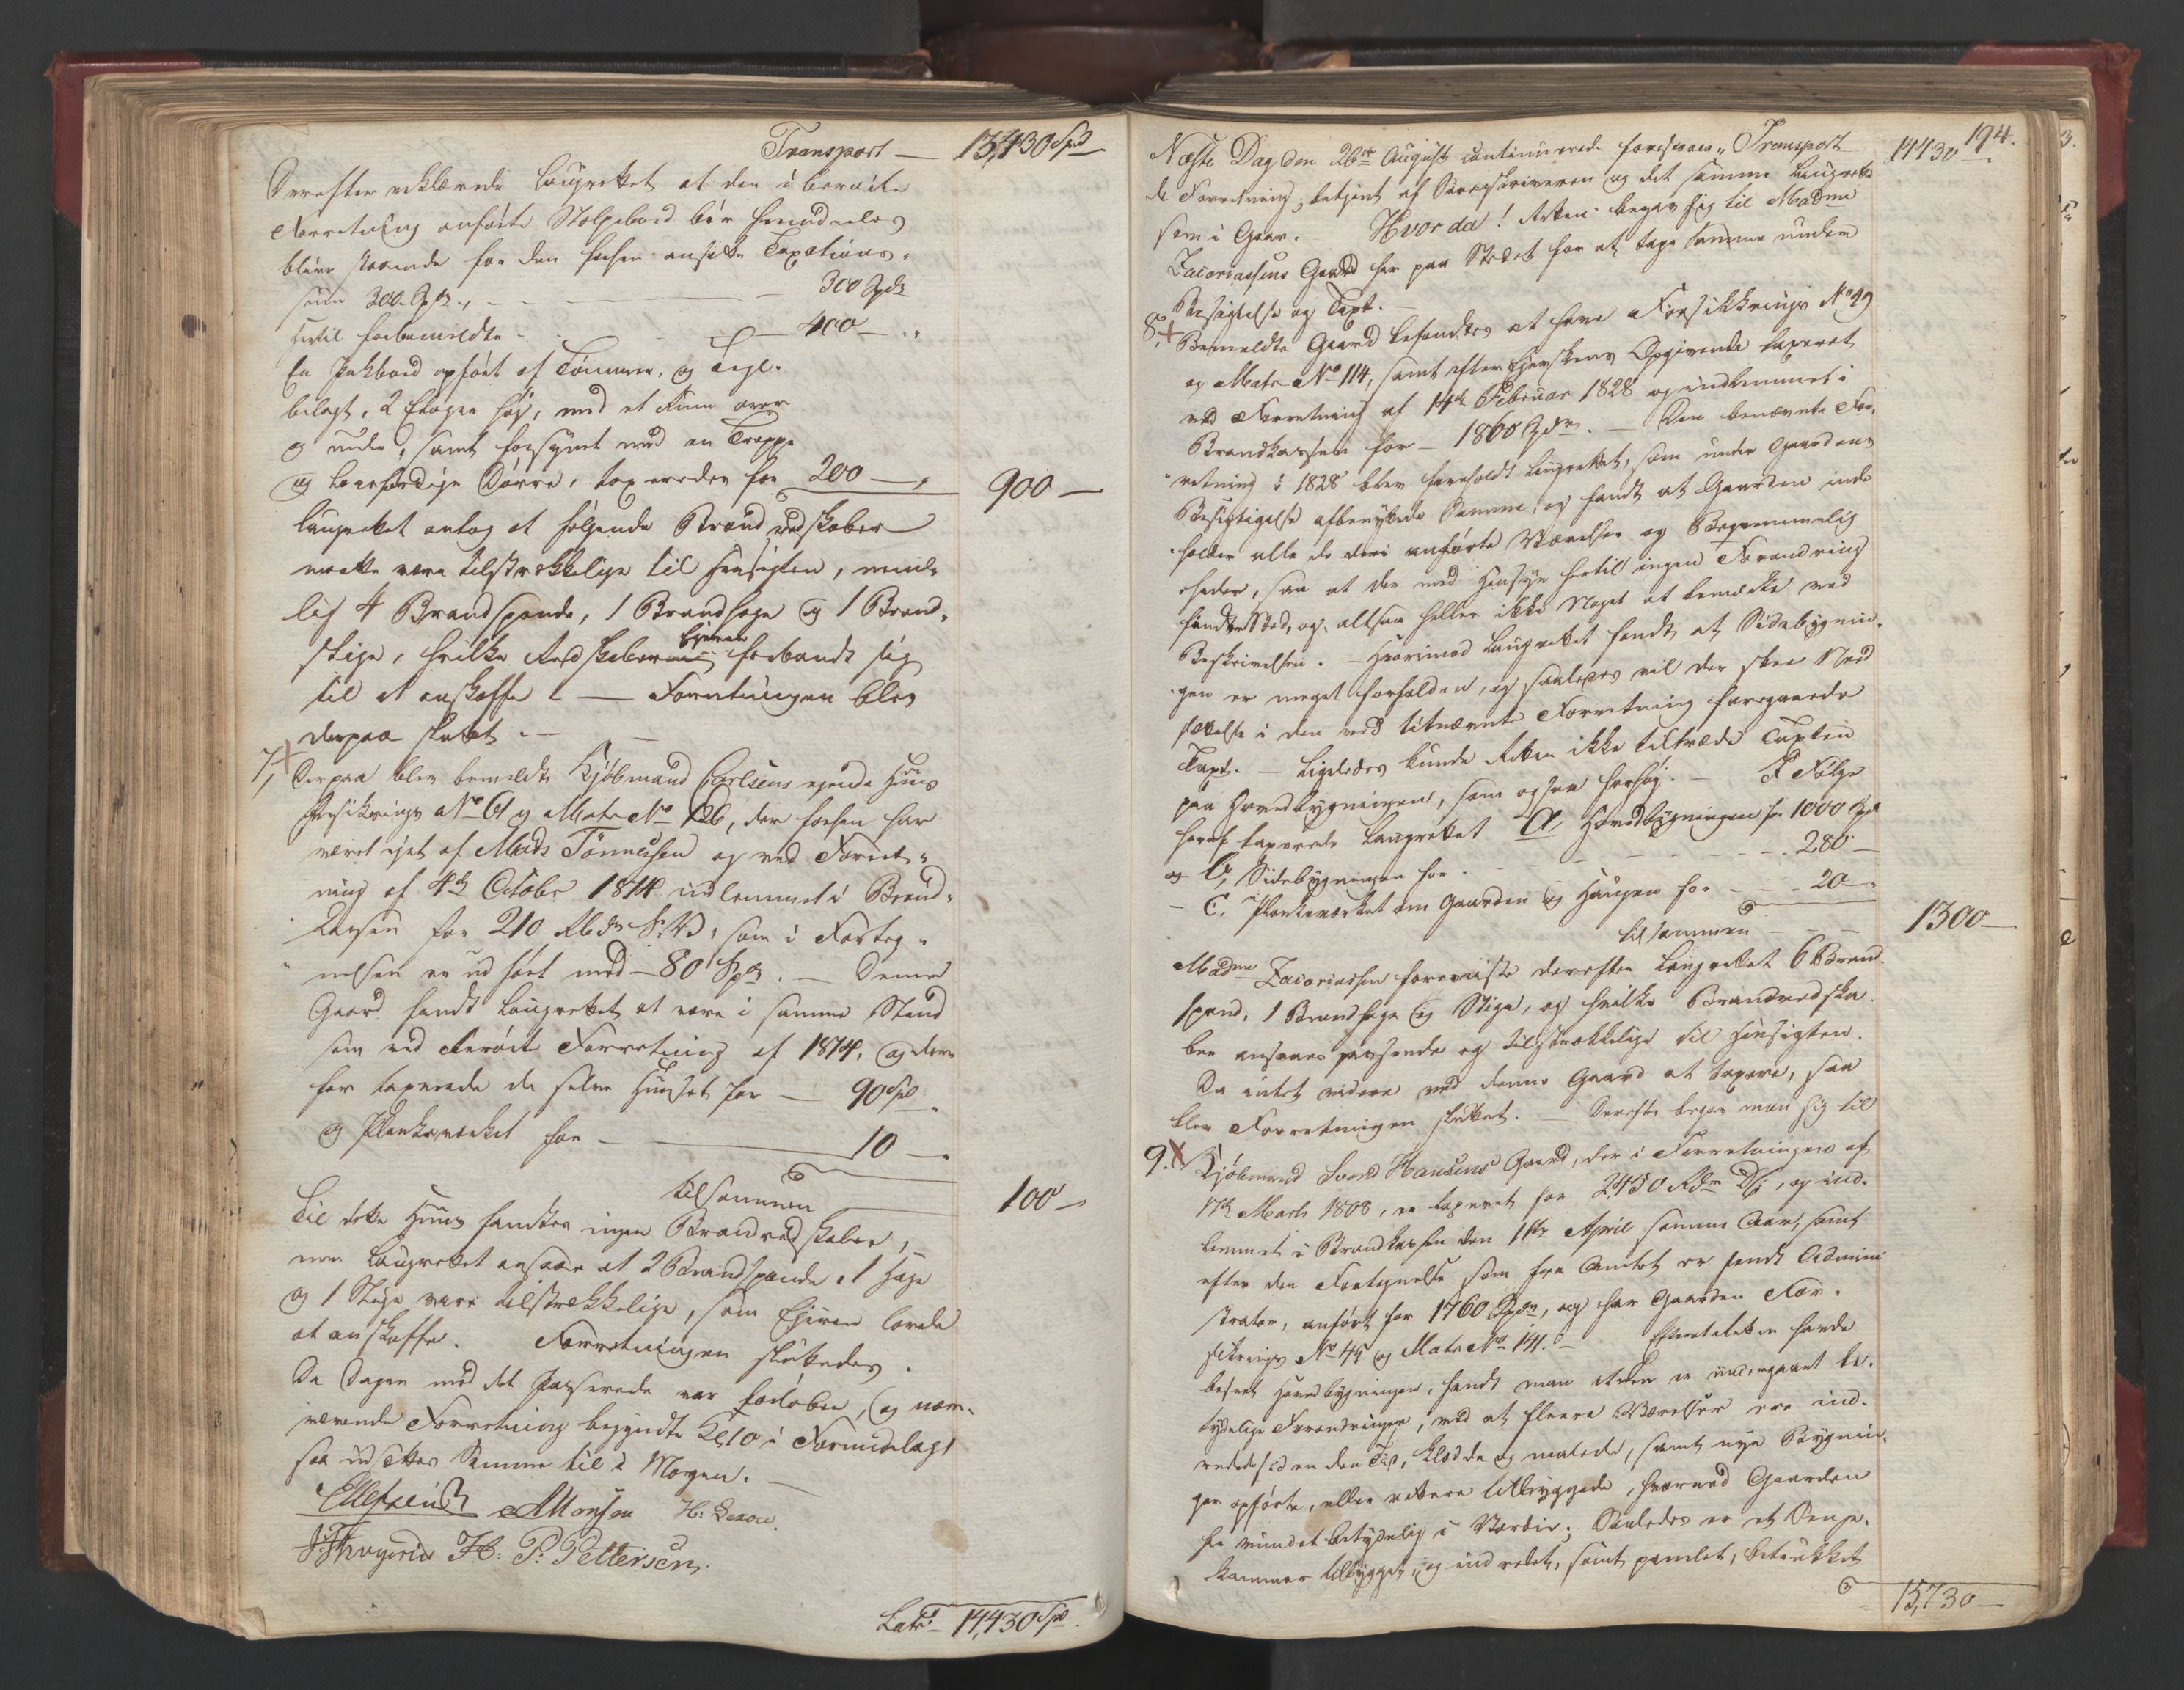 Transport — 13,430 Spd
Derefter erklærede Laugrettet at den i berørte
Forretning anførte Stolpebod bør fremdeeles
blive staaende for den forhen ansatte Taxations-
sum 300 Spdr, — 300 Spdr
Hertil forbemeldte — 400 —
En Pakbod opført af Tømmer, og Tegl-
belagt, 2 Etager høj, med et Rum over
og under, samt forsynet med en Trappe
og behørige Dørre, taxeredes for 200 — 900 —
Laugrettet antog at følgende Brandredskaber
maatte være tilstrækkelige til Hensigten, nem-
lig 4 Brandspande, 1 Brandhage og 1 Brand-
stige, hvilke Redskaber Ejeren forbandt sig
til at anskaffe. — Forretningen blev
derpaa sluttet. —
7, Derpaa blev bemeldte Kjøbmand Carlsens ejende Huus
Forsikrings No 61 og Matr No 126, der forhen har
været ejet af Mads Tønnessen og ved Forret-
ning af 4de Octobr 1814 indlemmet i Brand-
Cassen for 210 Rbdr S.V., som i Forteg-
nelsen er udført med 80 Spdr. — Denne
Gaard fandt Laugrettet at være i samme Stand
som ved berørte Forretning af 1814, og derfor
taxerede de selve Huuset for — 90 Spd
og Plankeværket for — 10 —
tilsammen 100 —
Til dette Huus fandtes ingen Brandredskaber,
men Laugrettet ansaae at 2 Brandspande, 1 Hage
og 1 Stige være tilstrækkelige, som Ejeren lovede
at anskaffe. Forretningen sluttedes.
Da Dagen med det Passerede var forløben, og nær-
værende Forretning begyndte Kl. 10 i Formiddags
saa udsættes Samme til i Morgen. —
Ellefsen AMonsen H:
H: P: Pettersen.
Lats 14,430 Spd.
194.
Næste Dag den 26de August continuerede foreskreven Transport 14430 —
de Forretning, betjent af Sorenskriveren og det samme Laugrette
som i Gaar. Hvorda! Retten begav sig til Madme
Zacariassens Gaard her paa Stedet for at tage samme under
Besigtelse og Taxt. —
8, Bemeldte Gaard befandtes at have Forsikkrings No 49
og Matr No 114, samt efter Ejerskens Opgivende taxeret
ved Forretning af 14de Februar 1828 og indlemmet i
Brandkassen for — 1860 Spdr. — Den benævnte For-
retning i 1828 blev foreholdt Laugrettet, som under Gaardens
Besigtigelse afbenyttede Samme, og fandt at Gaarden inde-
holder alle de deri anførte Værelser og Beqvemmelig-
heder, saa at der med Hensyn hertil ingen Forandring
finder Sted, og altsaa heller ikke Noget at bemærke ved
Beskrivelsen. — Hvorimod Laugrettet fandt at Sidebygnin-
gen er meget forfalden, og saaledes vil der skee Ned-
sættelse i den ved bemeldte Forretning foregaaede
Taxt. — Ligeledes kunde Retten ikke tiltræde Taxten
paa Hovedbygningen, som ogsaa for høj. — I Følge
heraf taxerede Laugrettet A, Hovedbygningen for 1000 Spd
og B, Sidebygningen for — 280 —
— C, Plankeværket om Gaarden og Haugen for — 20 —
tilsammen — 1300 —
Madme Zacariassen foreviiste derefter Laugrettet 6 Brand-
spand, 1 Brandhage og Stige, og hvilke Brandredska-
ber ansaaes passende og tilstrækkelige til Hensigten.
Da intet videre ved denne Gaard at taxere, saa
blev Forretningen sluttet. — Derefter begav man sig til
9. Kjøbmand Svend Hansens Gaard, der i Forretningen af
17de Marts 1808, er taxeret for 2450 Rdr D.C., og ind-
lemmet i Brandkassen den 1ste April samme Aar, samt
efter den Fortegnelse som fra Amtet er sendt Admini-
strator, anført for 1760 Spdr, og har Gaarden For-
sikrings No 45 og Matr No 141. — Efterat Retten havde
beseet Hovedbygningen, fandt man at den er undergaaet be-
tydelige Forandringer, ved at fleere Værelser ere ind-
redede siden den Tid, klædde og malede, samt nye Bygnin-
ger opførte, eller rettere tilbyggede, hvorved Gaarden
har vundet betydelig i Værdie; Saaledes er et Senge-
kammer tilbygget, og indredet, samt panelet, betrukket
15,730 —